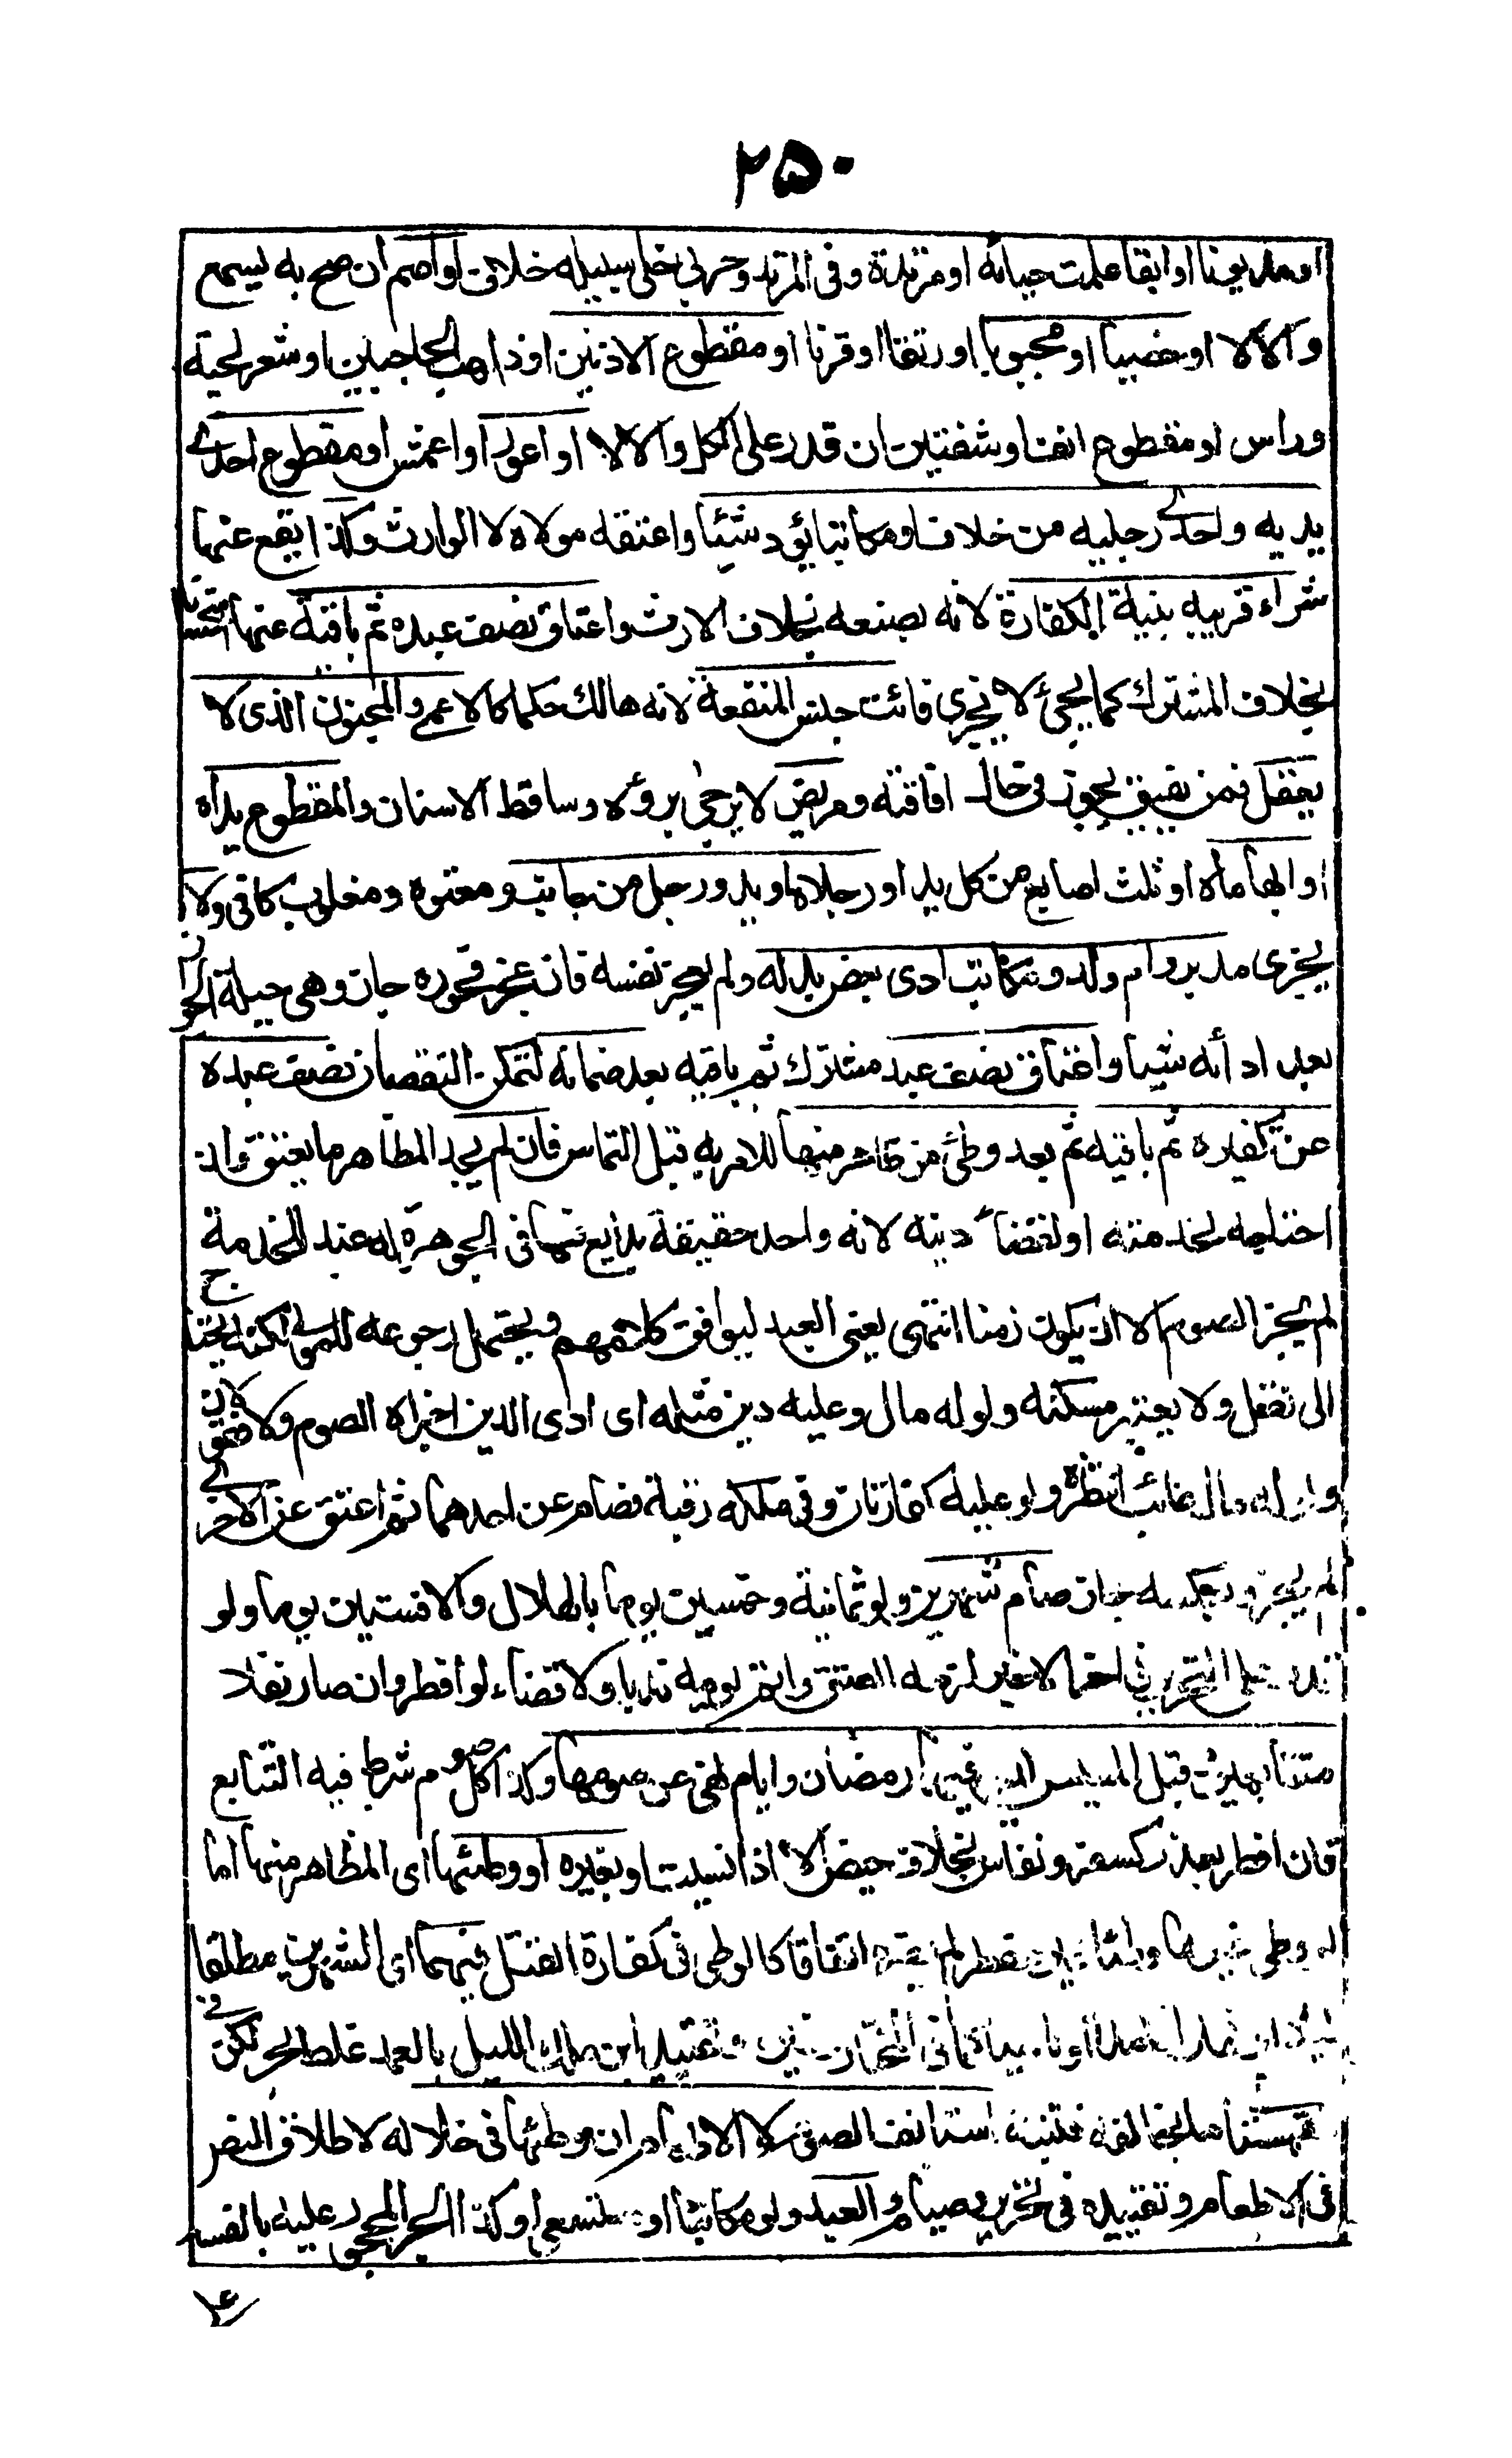 ٢٥٠
او مديونا او ابقا علمت حياته او مرتدة وفى المرتد وحربى خلى سبيله خلاف او اصم ان صح به يسمع
والا لا او خصيا او مجبوبا او رتقا او قرنا او مقطوع الاذنين او ذاهب الحاجبين او شعر لحية
وراس او مقطوع انف او شفتين ان قدر على الاكل والا لا او اعور او اعمش او مقطوع احدى
يديه واحدى رجليه من خلاف او مكاتبا لم يؤد شيئا واعتقه مولاه لا الوارث وكذا يقع عنها
شراء قريبه بنية الكفارة لانه بصنعه بخلاف الارث واعتاق نصف عبده ثم باقيه عنها استحسانا
بخلاف المشترك كما يجئ لا يجزى فائت جنس المنفعة لانه هالك حكما كالاعمى والمجنون الذى لا
يعقل فمن يفيق يجوز فى حال افاقته ومريض لا يرجى برؤه وساقط الاسنان والمقطوع يداه
او ابهاماه او ثلث اصابع من كل يد او رجلاه او يد ورجل من جانب ومعتوه ومغلوب كافى ولا
يجزى مدبر وام ولد ومكاتب ادى بعض بدله ولم يعجز نفسه فان عجز فحرره جاز وهى حيلة الجواز
بعد ادائه شيئا واعتاق نصف عبد مشترك ثم باقيه بعد ضمانه لتمكن النقصان نصف عبده
عن تكفيره ثم باقيه ثم بعد وطئ من ظاهر منها للامر به قبل التماس فان لم يجد المظاهر ما يعتق وان
احتاجه لخدمته او لقضاء دينه لانه واحد حقيقة بدايع فما فى الجوهرة له عبد للخدمة
لم يجز الصوم الا ان يكون زمنا انتهى يعنى العبد ليوافق كلامهم ويحتمل رجوعه للمولى لكنه يحتاج
الى نقل ولا يعتبر مسكنه ولو له مال وعليه دين مثله اى ادى الدين اجزاه الصوم ولا فقولان
وان له مال غائب انتظره ولو عليه كفارتان وفى ملكه رقبة فصام عن احدهما ثم اعتق عن الاخرى
لم يجز وبعكسه جاز صام شهرين ولو ثمانية وخمسين يوما بالهلال والا فستين يوما ولو
قدر على التحرير فى اخر الاخير لزمه العتق واتم يومه ندبا ولا قضاء لو افطر وان صار نفلا
متتابعين قبل المسيس ليس فيهما رمضان وايام نهى عن صومها وكذا كل صوم شرط فيه التتابع
فان افطر بعذر كسفر ونفاس بخلاف حيض الا اذا ايست او بغيره او وطئها اى المظاهر منها اما
لو وطى غيرها وطئا غير مفطر لم يضر اتفاقا كالوطى فى كفارة القتل فيهما اى الشهرين مطلقا
ليلا او نهارا عامدا او ناسيا كما فى المختار وتقييد ابن ملك الليل بالعمد غلط بحر لكن فى
القهستانى ما يخالفه فتنبه استانف الصوم لا الاطعام ان وطئها فى خلاله لاطلاق النص
فى الاطعام وتقييده فى تحرير وصيام والعبد ولو مكاتبا او مستسعى وكذا الحر المحجور عليه بالسفه